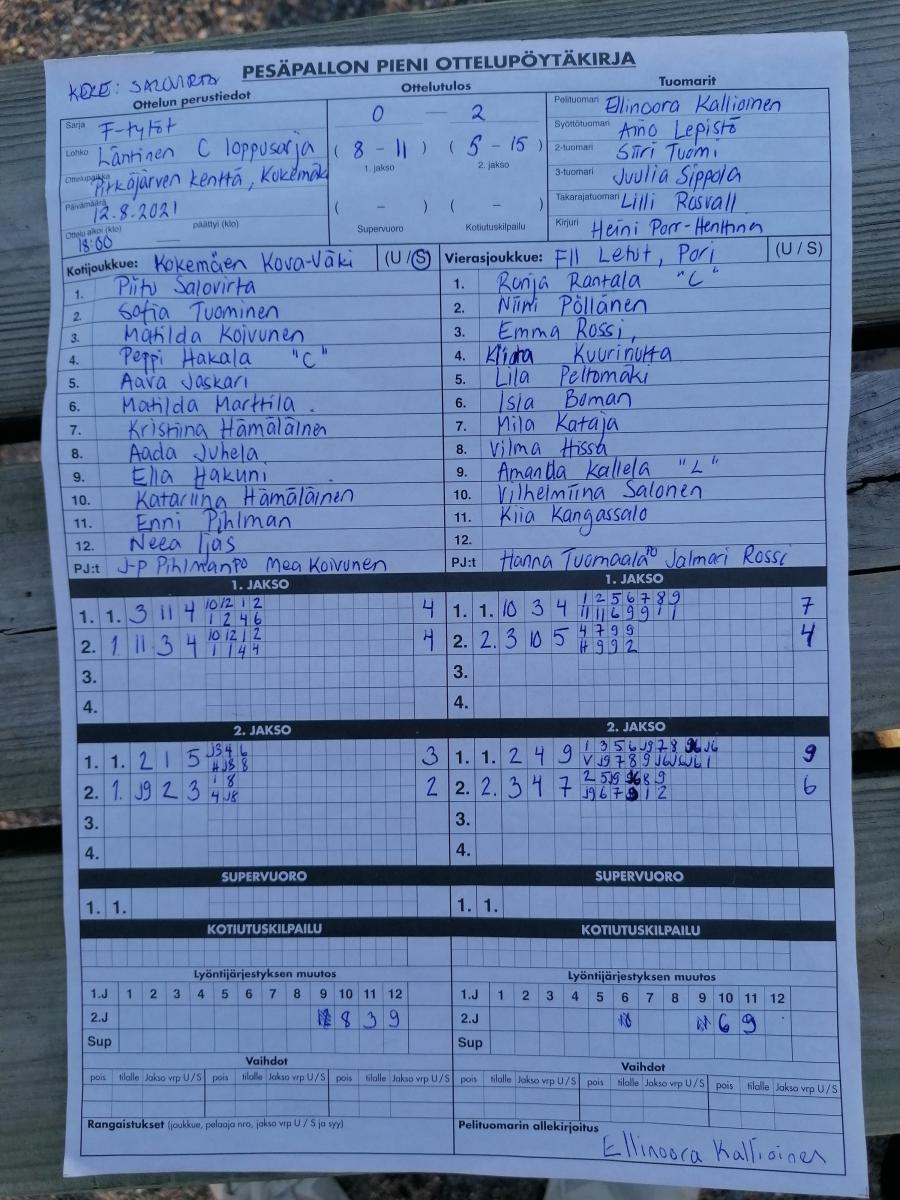 PESÄPALLON PIENI OTTELUPÖYTÄKIRJA
Ottelun perustiedot Ottelutulos Tuomarit
Sarja F-tytöt
Lohko Läntinen C loppusarja
Ottelupaikka Pitkäjärven kenttä, Kokemäk
Päivämäärä 12.8.2021
Ottelu alkoi (klo) päättyi (klo)
18:00 —
0 — 2
( 8 - 11 ) ( 5 - 15 )
1. jakso 2. jakso
( - ) ( - )
Supervuoro Kotiutuskilpailu
Pelituomari Ellinoora Kallioinen
Syöttötuomari Aino Lepistö
2-tuomari Siiri Tuomi
3-tuomari Juulia Sippola
Takarajatuomari Lilli Rosvall
Kirjuri Heini Porr-Henttinen
Kotijoukkue: Kokemäen Kova-Väki (U / S)
1. Piitu Salovirta
2. Sofia Tuominen
3. Matilda Koivunen
4. Peppi Hakala "C"
5. Aava Jaskari
6. Matilda Marttila
7. Kristiina Hämäläinen
8. Aada Juhela
9. Ella Hakuni
10. Katariina Hämäläinen
11. Enni Pihlman
12. Neea Ijas
PJ:t J-P Pihlman PO Mea Koivunen
Vierasjoukkue: FII Letut, Pori (U / S)
1. Ronja Rantala "C"
2. Niimi Pöllänen
3. Emma Rossi
4. Kuurinutta
5. Lila Peltomäki
6. Isla Boman
7. Mila Kataja
8. Vilma Hissa
9. Amanda Kallela "L"
10. Vilhelmiina Salonen
11. Kiia Kangassalo
12.
PJ:t Hanna Tuomaala PO Jalmari Rossi
1. JAKSO
1. 1. 3 11 4 10 12 1 2 4
1 2 4 6
2. 1. 11 3 4 10 12 1 2 4
1 1 4 4
3.
4.
1. JAKSO
1. 1. 10 3 4 1 2 5 6 7 8 9 7
11 11 6 9 9 1 1
2. 2. 3 10 5 4 7 9 9 4
4 9 9 2
3.
4.
2. JAKSO
1. 1. 2 1 5 J3 4 6 3
4 J8 8
2. 1. J9 2 3 1 8 2
4 J8
3.
4.
2. JAKSO
1. 1. 2 4 9 1 3 5 6 J9 7 8 J6 9
V J9 7 8 9 J6 J6 J6 1
2. 2. 3 4 7 2 5 J9 8 9 6
J9 6 7 1 2
3.
4.
SUPERVUORO SUPERVUORO
1. 1. 1. 1.
KOTIUTUSKILPAILU KOTIUTUSKILPAILU
Lyöntijärjestyksen muutos
1.J 1 2 3 4 5 6 7 8 9 10 11 12
2.J 8 3 9
Sup
Lyöntijärjestyksen muutos
1.J 1 2 3 4 5 6 7 8 9 10 11 12
2.J 6 9
Sup
Vaihdot
pois tilalle Jakso vrp U / S pois tilalle Jakso vrp U / S pois tilalle Jakso vrp U / S
Vaihdot
pois tilalle Jakso vrp U / S pois tilalle Jakso vrp U / S pois tilalle Jakso vrp U / S
Rangaistukset (joukkue, pelaaja nro, jakso vrp U / S ja syy)
Pelituomarin allekirjoitus
Ellinoora Kallioinen